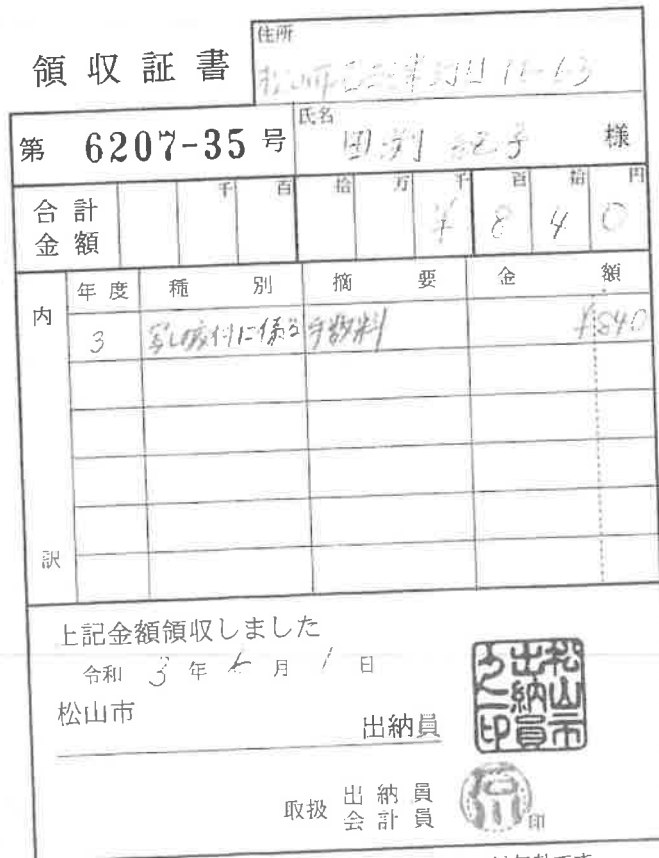 領収証書
住所
松山市
11-63
第 6207-35 号
氏名
紀子 様
合計金額
千 百 拾 万 千 百 拾 円
¥ 8 4 0
内訳
年度 種別 摘要 金額
3 写し交付に係る 手数料 ¥840
上記金額領収しました
令和 3 年 月 1 日
松山市
出納員
松山市出納員之印
取扱 出納員
会計員
印